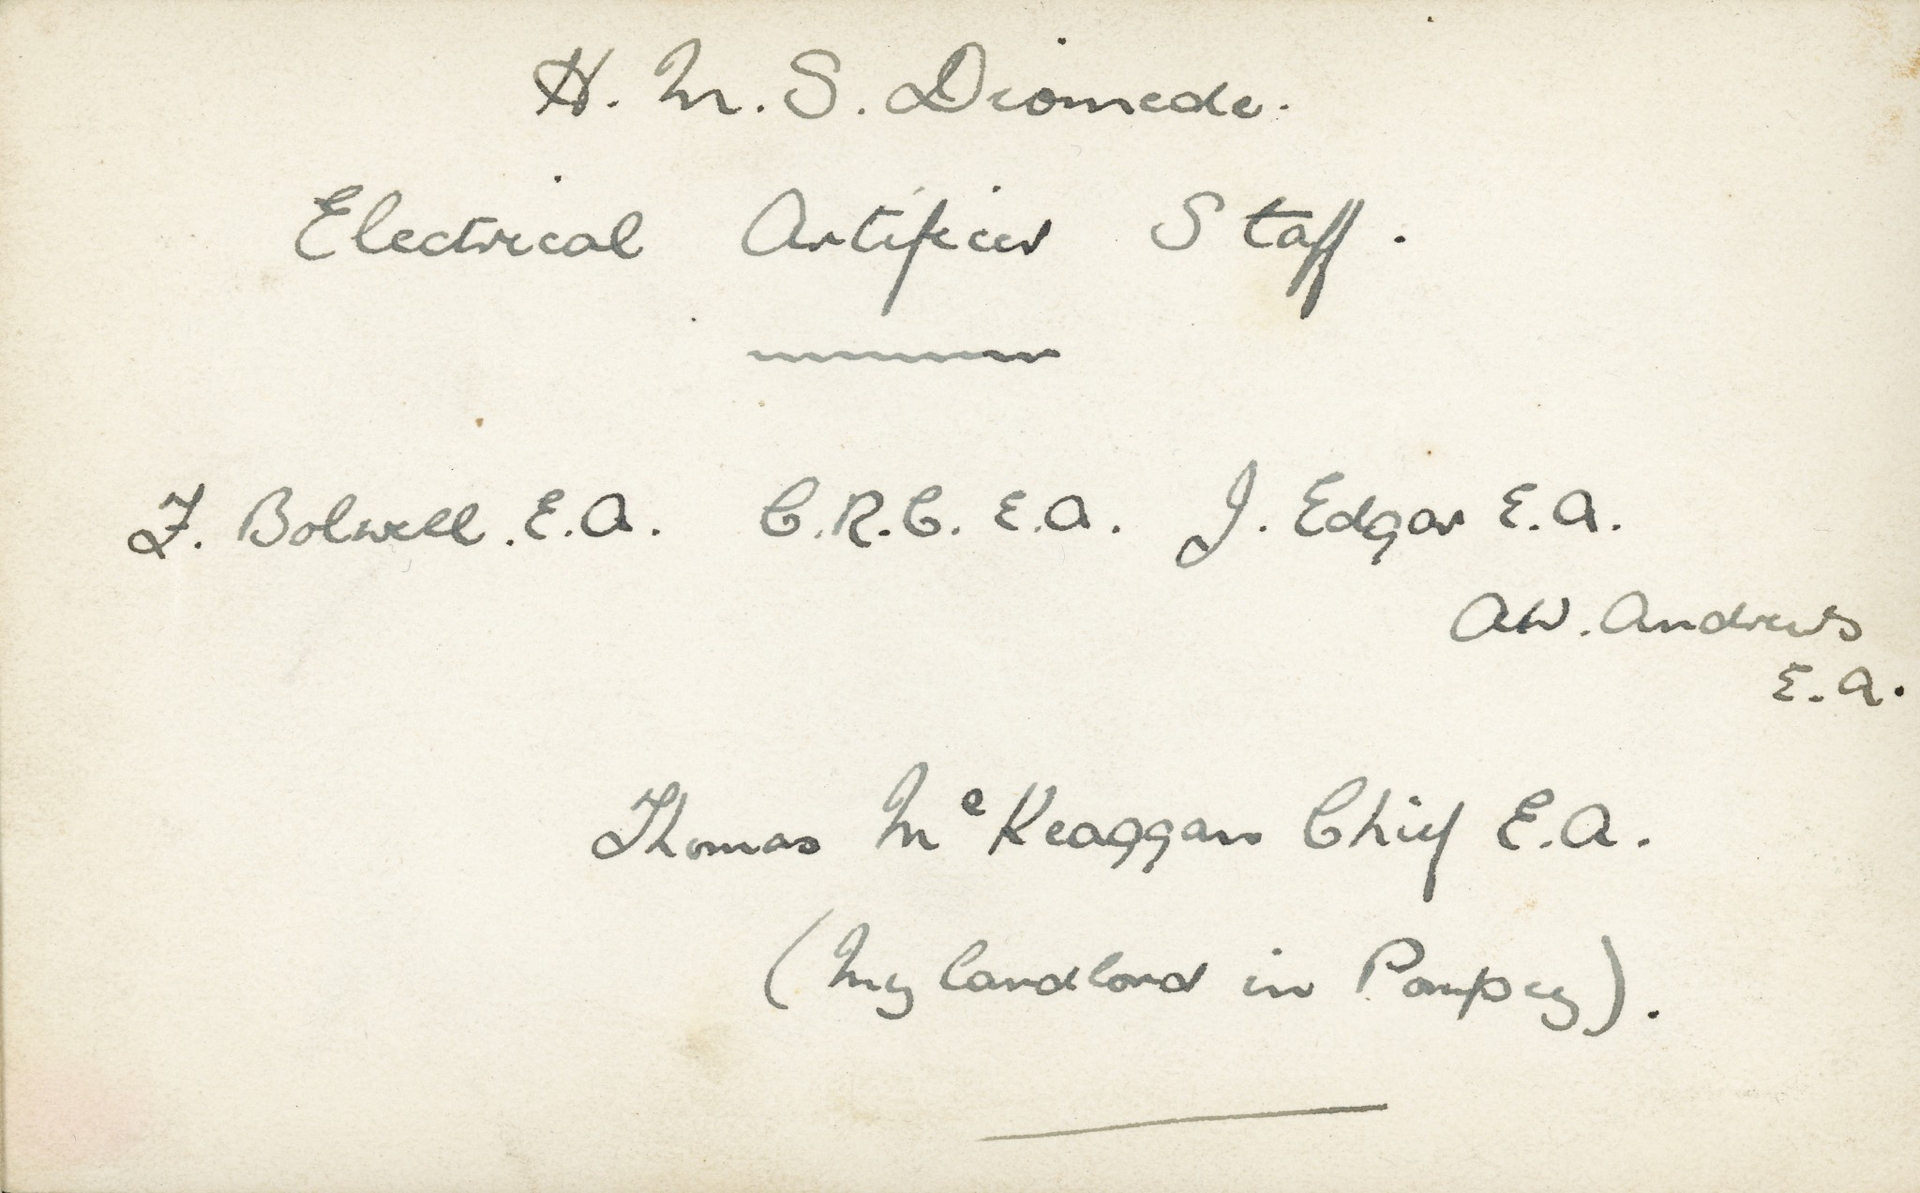 H. M. S. Diomede.
Electrical Artificer Staff.
F. Bolwell. E.A. C.R.C. E.A. J. Edgar E.A.
AW. Andrews
E.A.
Thomas McKeaggan Chief E.A.
(My landlord in Pompey).